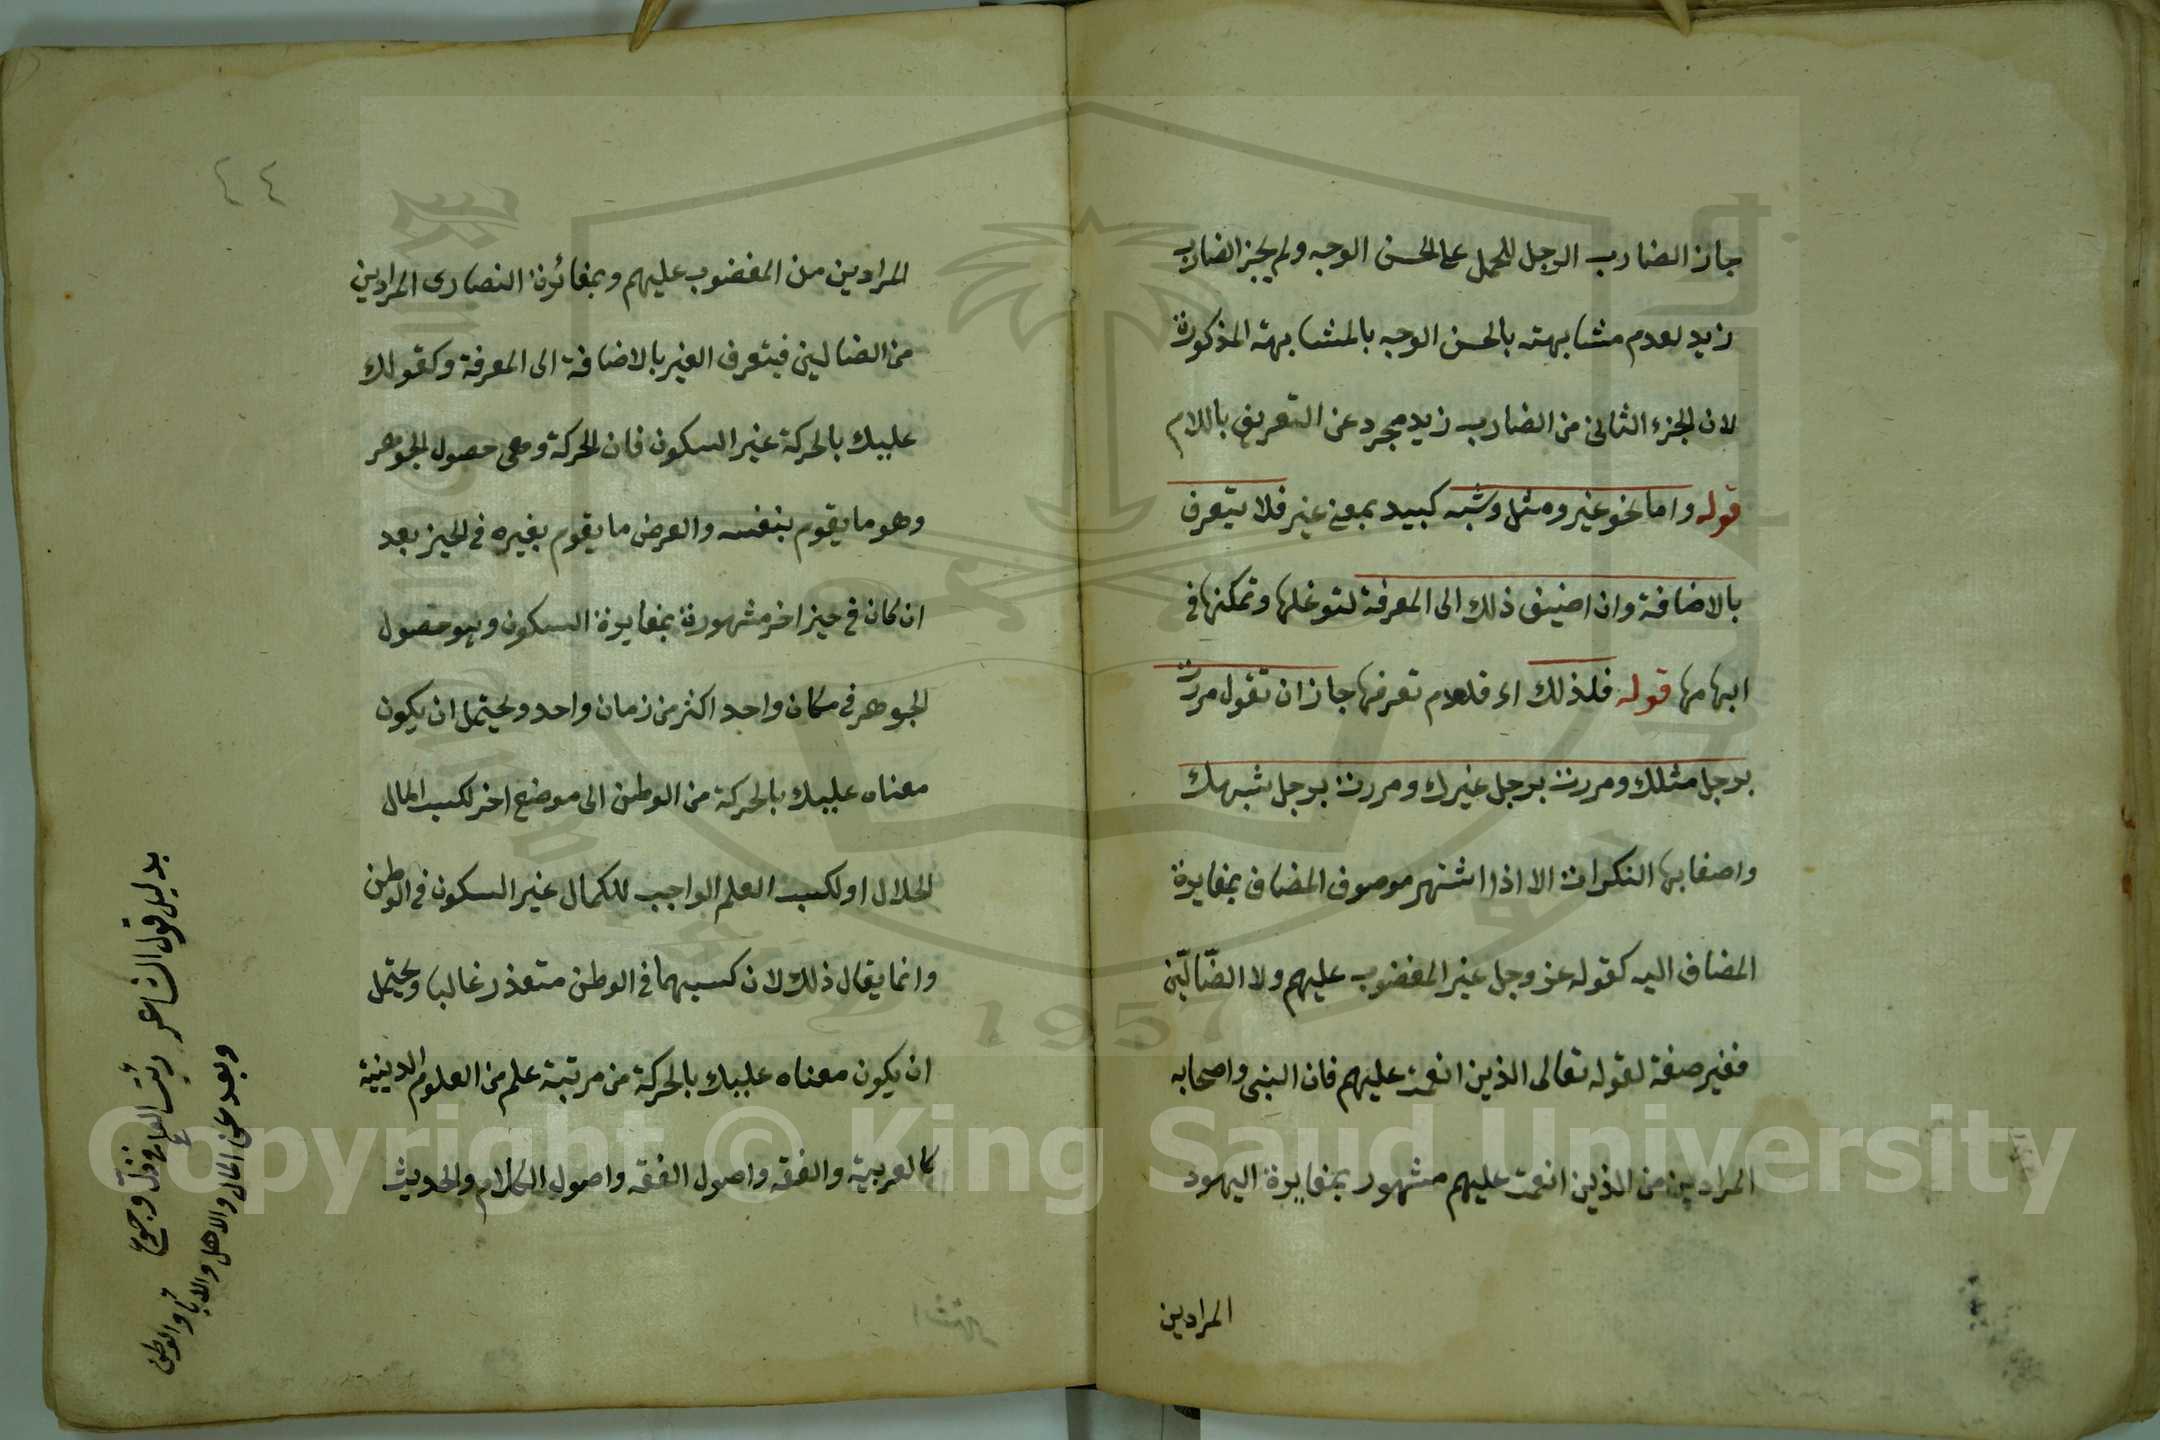 جاز الضارب الرجل للحمل على الحسن الوجه ولم يجز الضارب
زيد لعدم مشابهته بالحسن الوجه بالمشابهة المذكورة
لان الجزء الثاني من الضارب زيد مجرد عن التعريف باللام
قوله واما نحو غير ومثل وشبه كبيد بمعنى غير فلا يتعرف
بالاضافة وان اضيف ذلك الى المعرفة لتوغلها وتمكنها في
ابهامها قوله فلذلك اى فلعدم تعرفها جاز ان تقول مررت
برجل مثلك ومررت برجل غيرك ومررت برجل شبهك
واصفا بها النكرات الا اذا اشتهر موصوف المضاف بمغايرة
المضاف اليه كقوله عز وجل غير المغضوب عليهم ولا الضّالّين
فغير صفة لقوله تعالى الذين انعمت عليهم فان النبى واصحابه
المرادين من الذين انعمت عليهم مشهور بمغايرة اليهود
المرادين
٤٤
المرادين من المغضوب عليهم وبمغائرة النصارى المرادين
من الضالين فيتعرف الغير بالاضافة الى المعرفة وكقولك
عليك بالحركة غير السكون فان الحركة وهى حصول الجوهر
وهو ما يقوم بنفسه والعرض ما يقوم بغيره في الحيز بعد
ان كان في حيز اخر مشهورة بمغايرة السكون وهو حصول
الجوهر في مكان واحد اكثر من زمان واحد ويحتمل ان يكون
معناه عليك بالحركة من الوطن الى موضع اخر لكسب المال
الحلال او لكسب العلم الواجب للكمال غير السكون في الوطن
وانما يقال ذلك لان كسبهما في الوطن متعذر غالبا ويحتمل
ان يكون معناه عليك بالحركة من مرتبة علم من العلوم الدينية
كالعربية والفقه واصول الفقه واصول الكلام والحديث
بدليل قول الشاعر رئيت العلم في ذل وجوع
وبعد عن المال والاهل والاباء والوطن
1957
Copyright © King Saud University